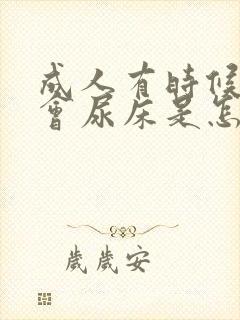 成人有時候
會尿床是怎
歲歲安